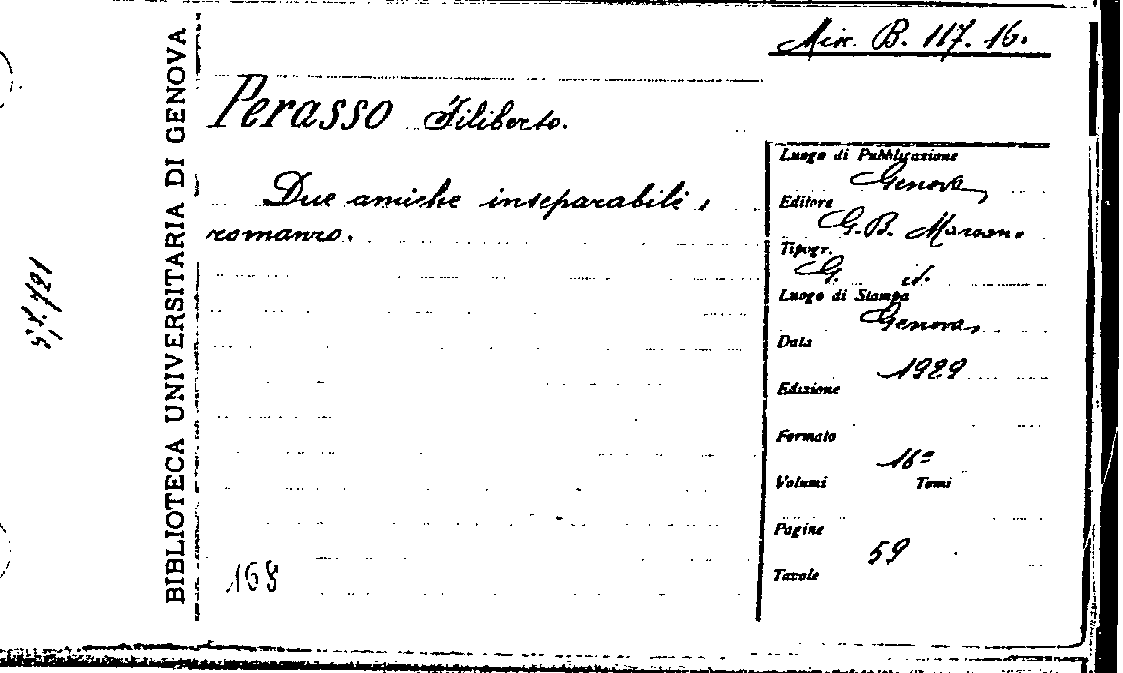 Misc. B. 117. 16.
BIBLIOTECA UNIVERSITARIA DI GENOVA
Perasso Filiberto.
Due amiche inseparabili,
romanzo.
168
Luogo di Pubblicazione
Genova,
Editore
G. B. Marsano
Tipogr.
G. id.
Luogo di Stampa
Genova,
Data
1929
Edizione
Formato
16º
Volumi Tomi
Pagine
59
Tavole